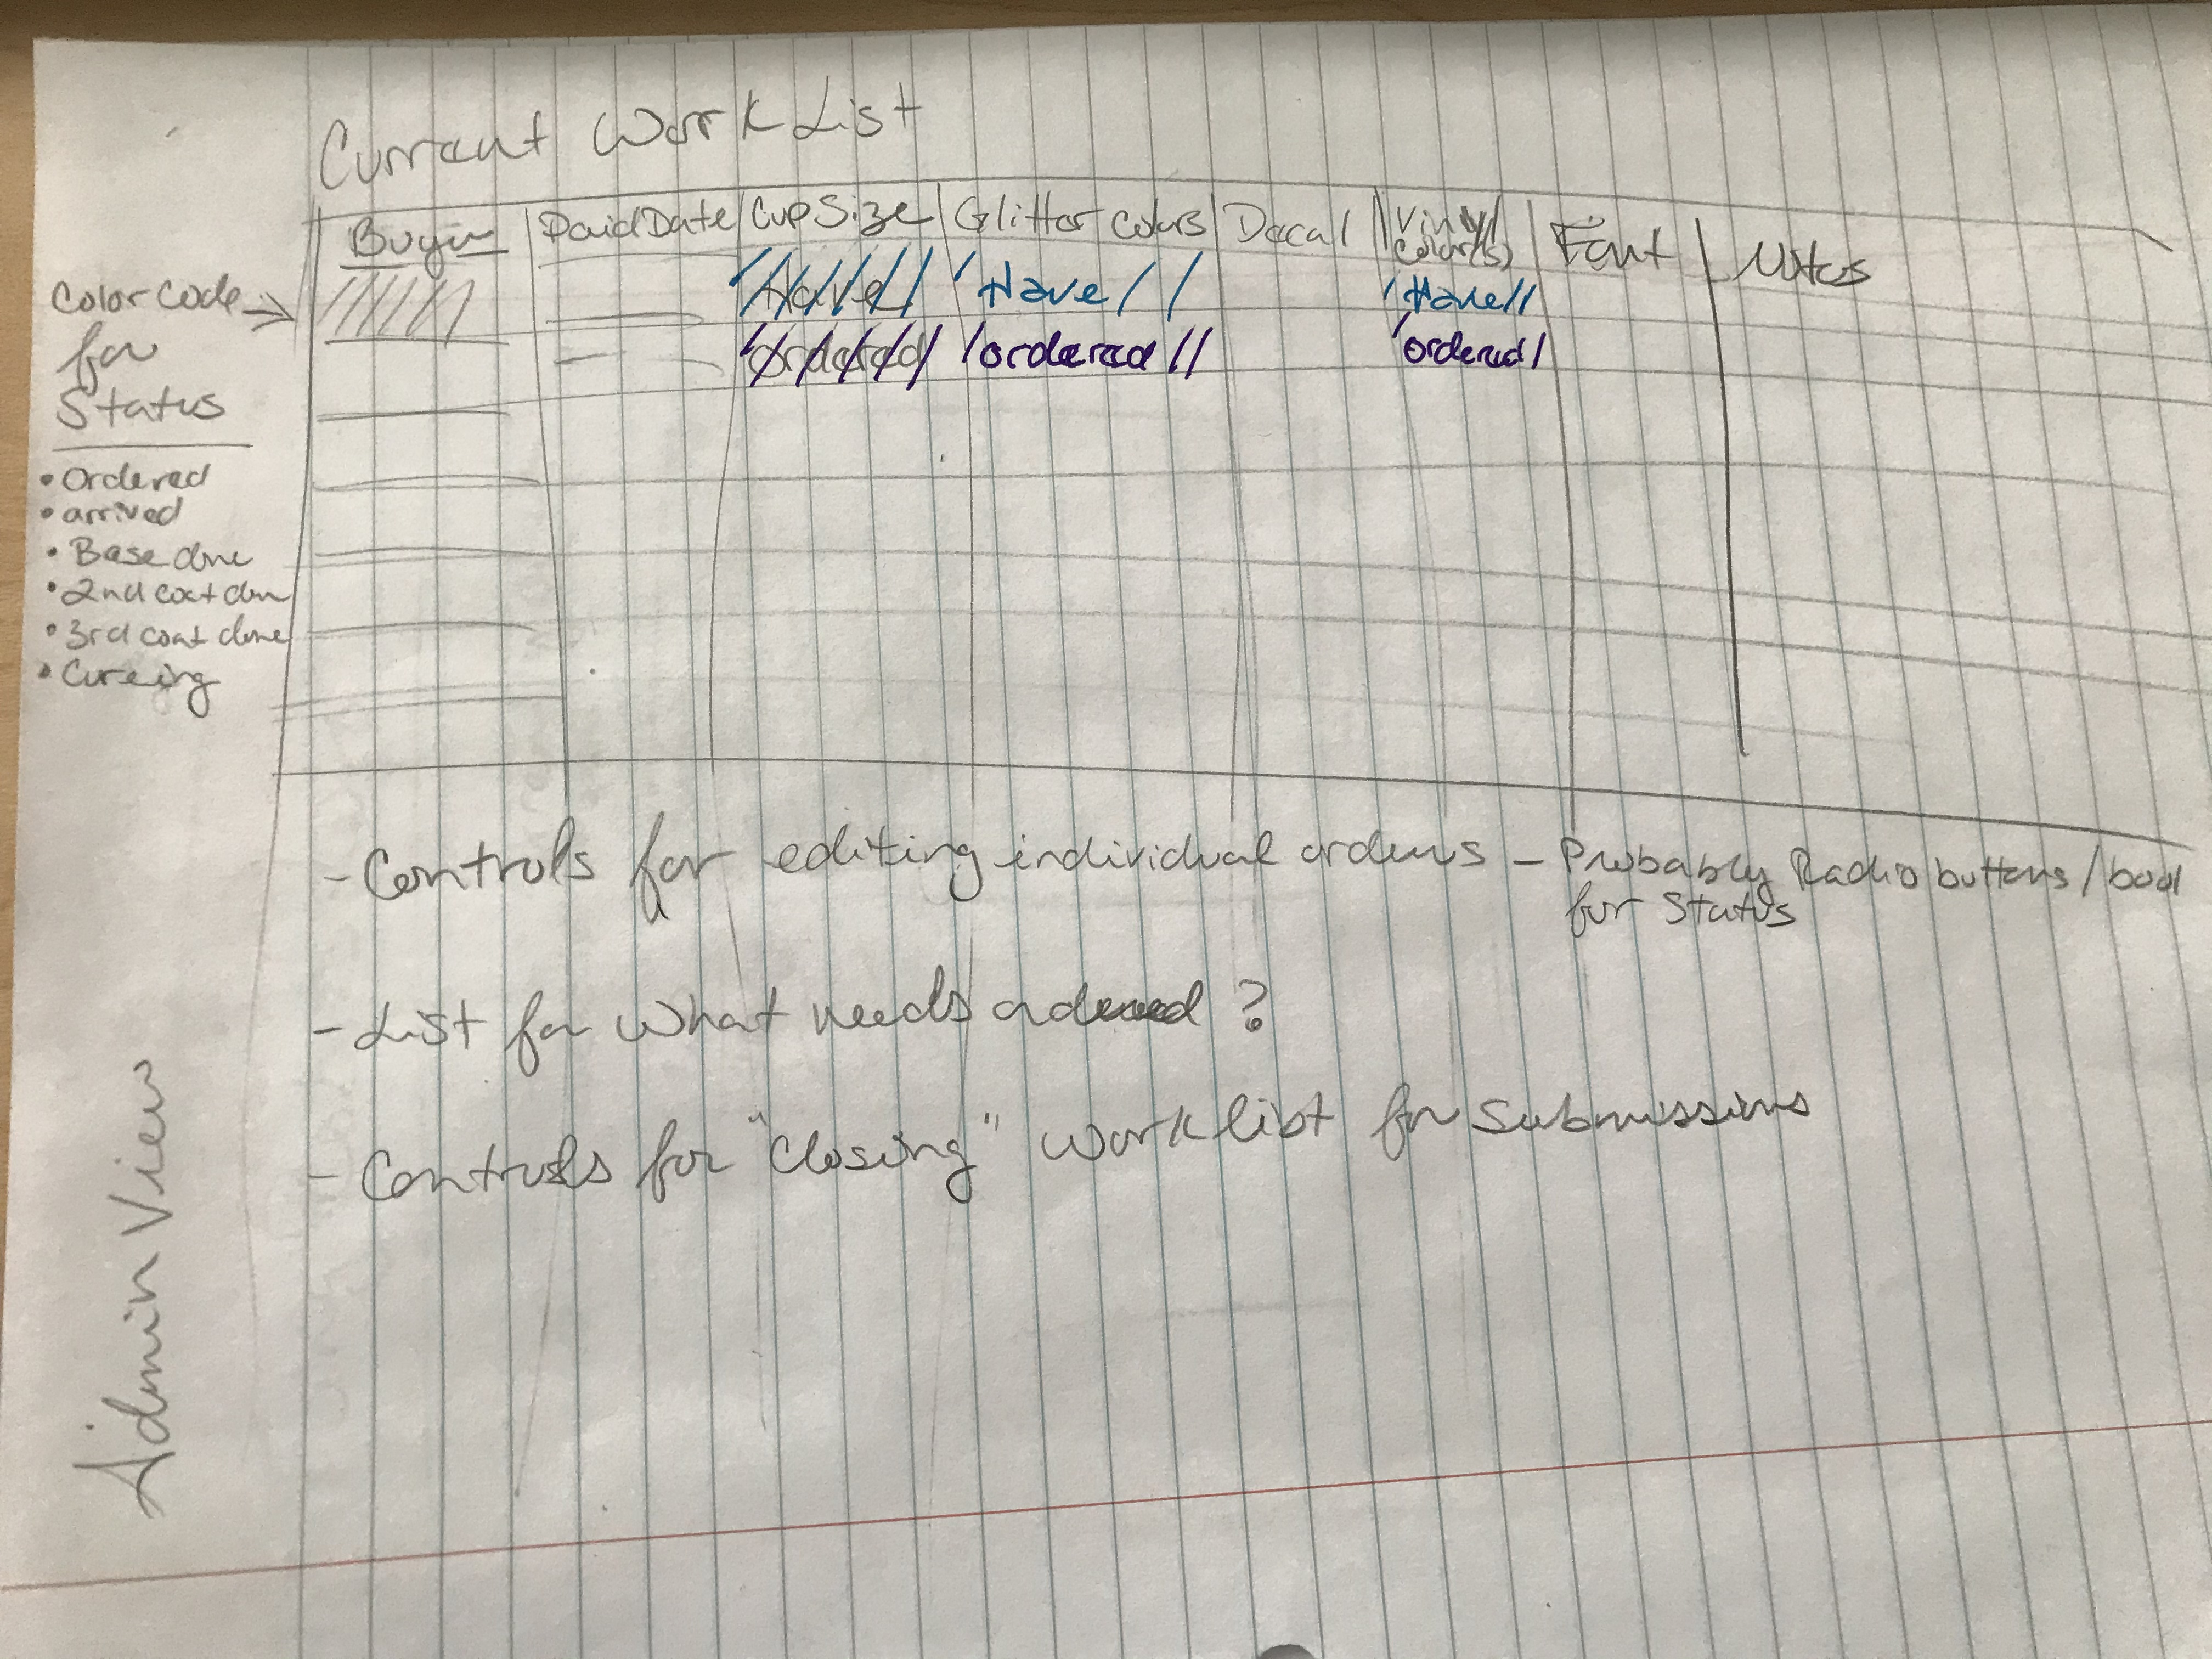 Current Work List
Color Code →
for
Status
• Ordered
• arrived
• Base done
• 2nd coat don
• 3rd coat done
• Cureing
Buyer | Paid Date | Cup Size | Glitter Colors | Decal | Vinyl Color(s) | Font | Notes
Have Have Have
Ordered ordered ordered
- Controls for editing individual orders - Probably Radio buttons / bool
for status
- List for what needs ordered ?
- Controls for "closing" work list for submissions
Admin View